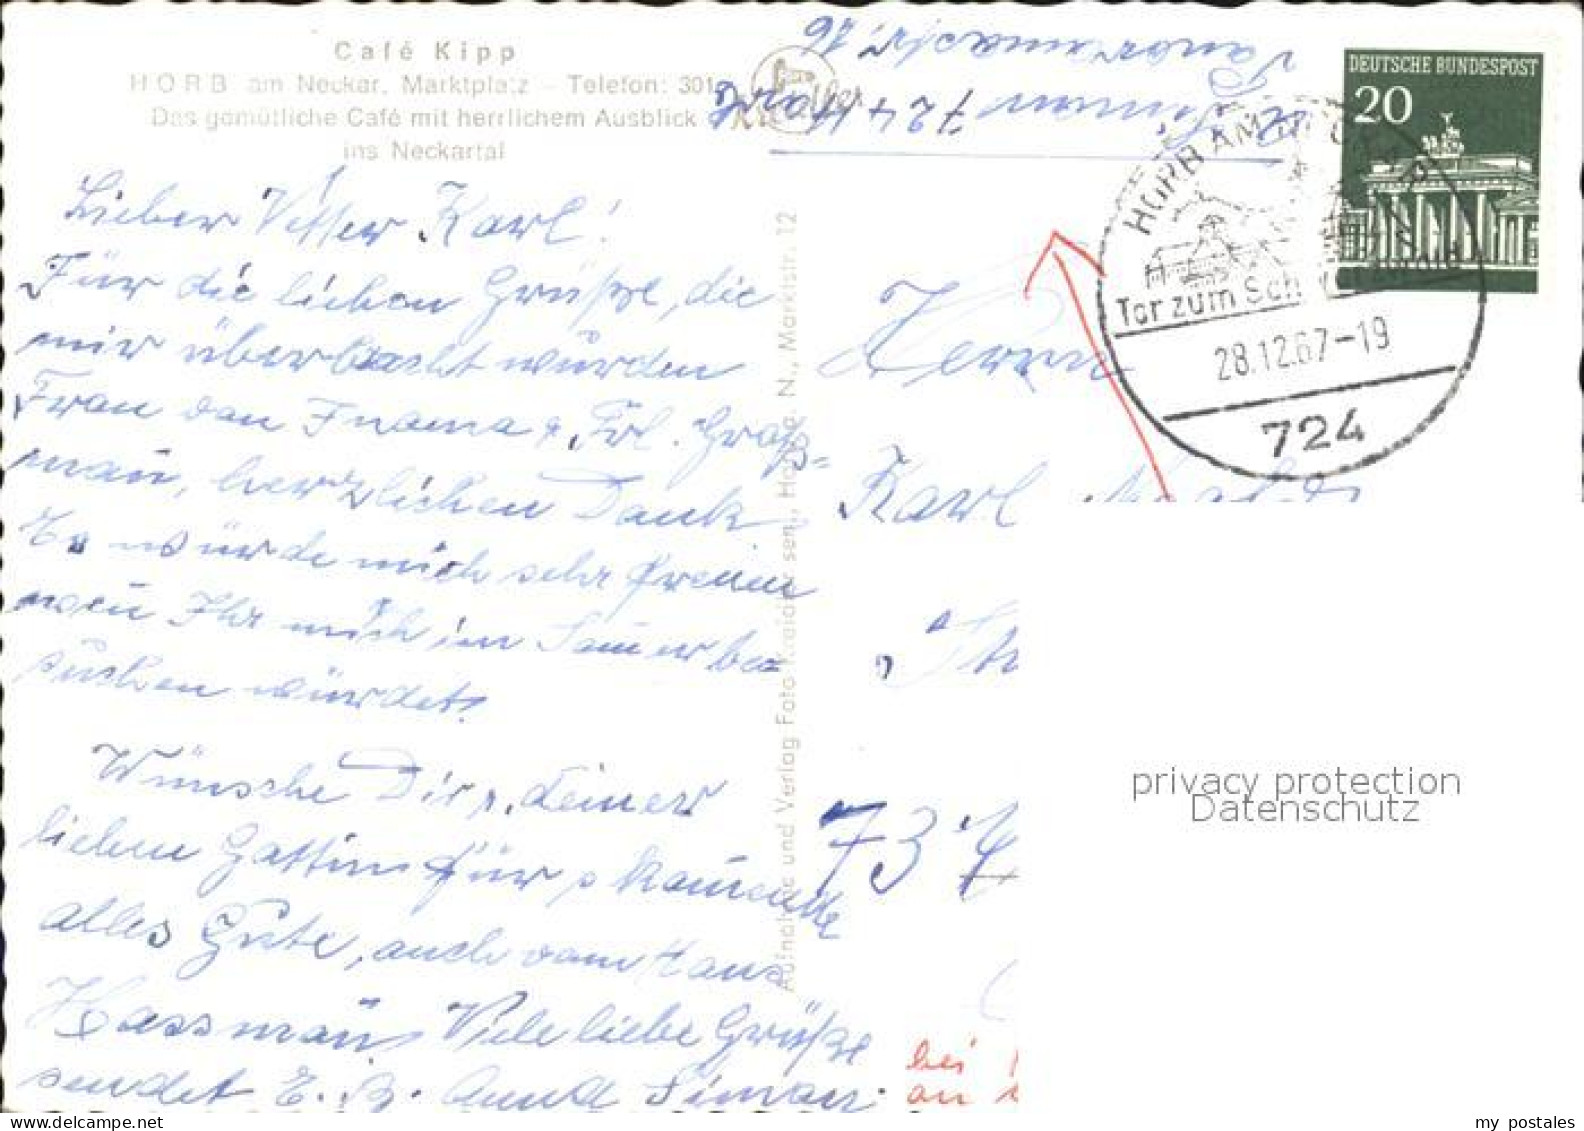 Café Kipp
HORB am Neckar, Marktplatz – Telefon: 301
Das gemütliche Café mit herrlichem Ausblick
ins Neckartal
Lieber Vetter Karl!
Für die lieben Grüße, die
mir überbracht würden
Frau von Fnama u. Frl. Graß=
man, herzlichen Dank.
Es würde mich sehr freuen
wen Ihr mich im Somer be=
suchen würdet!
Wünsche Dir u. deiner
lieben Gattin für's komende
alles Gute, auch vom Haus
Hassman. Viele liebe Grüße
sendet E. B. Anna Siman
Aufnahme und Verlag Foto Kreidler sen., Horb a. N., Marktstr. 12
Siman 724 Horb
Panoramastr. 76
DEUTSCHE BUNDESPOST
20
HORB AM NECKAR
Tor zum Schwarzwald
28.12.67-19
724
Herrn
Karl
73
bei
an
privacy protection
Datenschutz
my postales